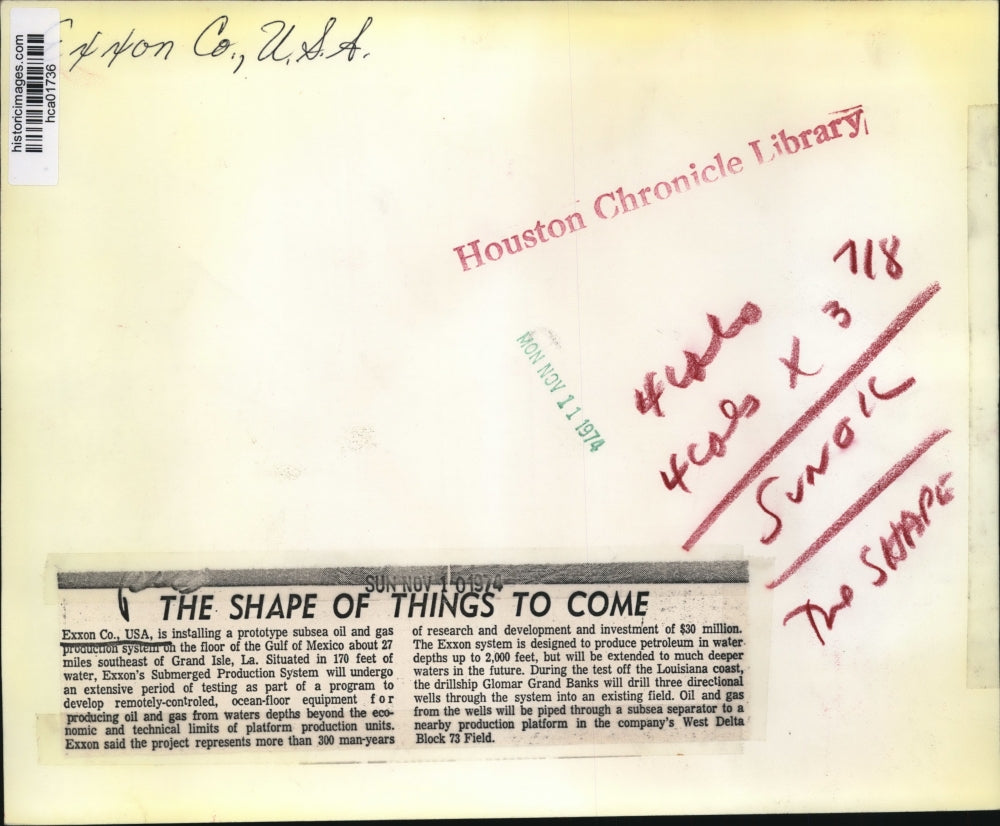 Exxon Co., U.S.A.
historicimages.com
hca01736
Houston Chronicle Library
MON NOV 11 1974
4 cols
4 cols X 3 7/8
SUN OIL
The SHAPE
SUN NOV 10 1974
THE SHAPE OF THINGS TO COME
Exxon Co., USA, is installing a prototype subsea oil and gas
production system on the floor of the Gulf of Mexico about 27
miles southeast of Grand Isle, La. Situated in 170 feet of
water, Exxon's Submerged Production System will undergo
an extensive period of testing as part of a program to
develop remotely-controled, ocean-floor equipment for
producing oil and gas from waters depths beyond the eco-
nomic and technical limits of platform production units.
Exxon said the project represents more than 300 man-years
of research and development and investment of $30 million.
The Exxon system is designed to produce petroleum in water
depths up to 2,000 feet, but will be extended to much deeper
waters in the future. During the test off the Louisiana coast,
the drillship Glomar Grand Banks will drill three directional
wells through the system into an existing field. Oil and gas
from the wells will be piped through a subsea separator to a
nearby production platform in the company's West Delta
Block 73 Field.